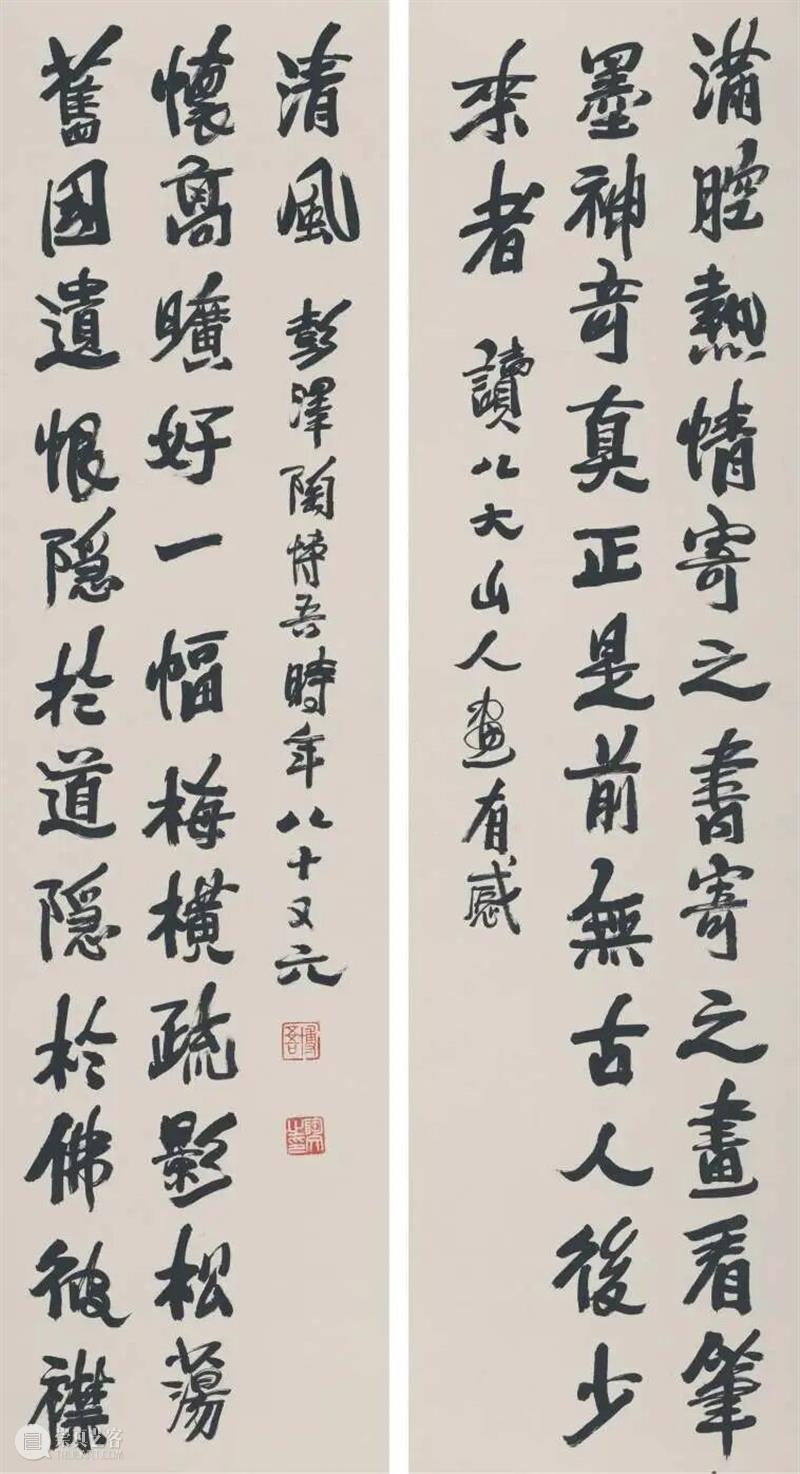 滿腔熱情寄之書寄之畫看筆
墨神奇真正是前無古人後少
來者 讀八大山人畫有感
舊國遺恨隱於道隱於佛彼襟
懷高曠好一幅梅橫疏影松蕩
清風 彭澤陶博吾時年八十又六
博吾
崇真艺客